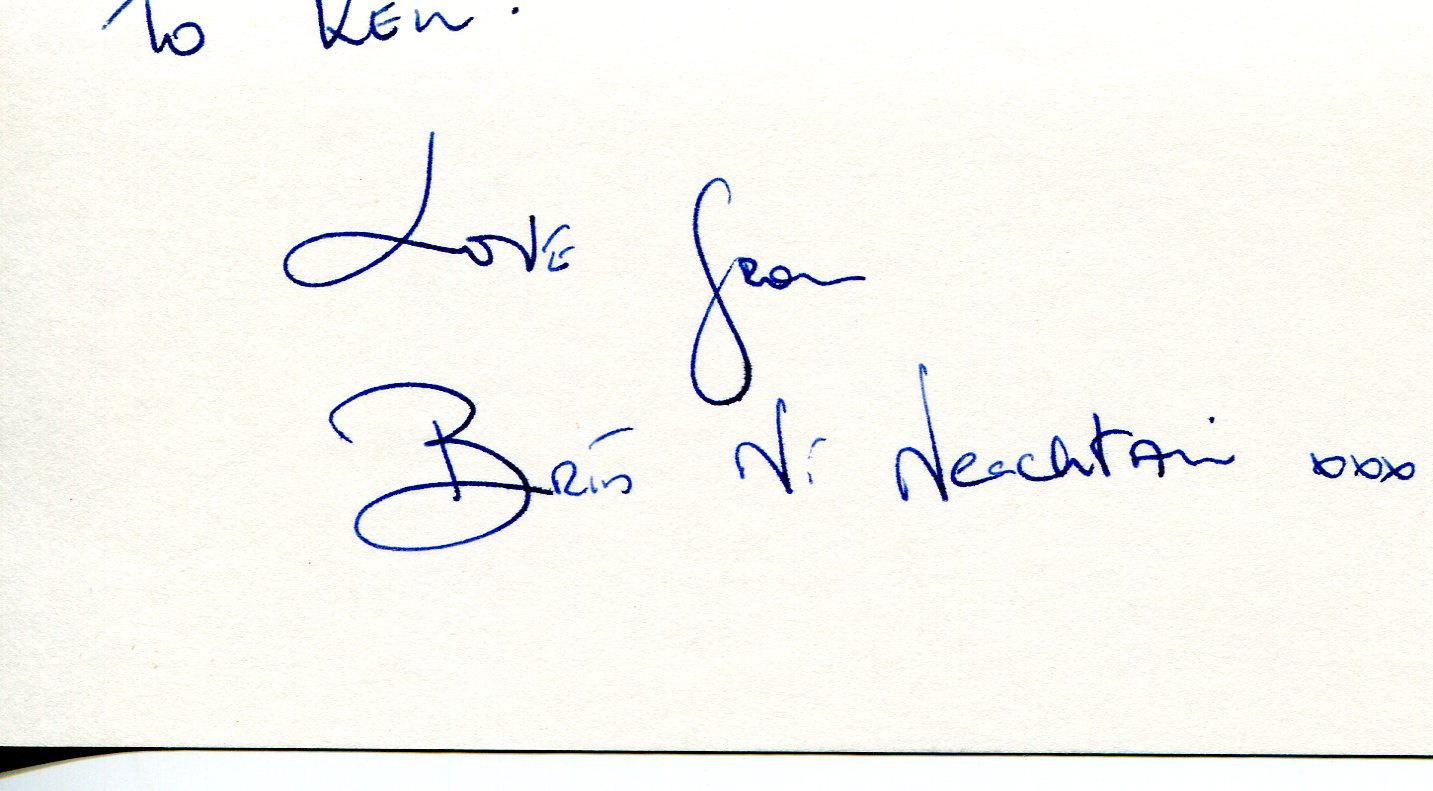 To KEN.
LOVE from
BRÍD Ní NeachtAin xxx